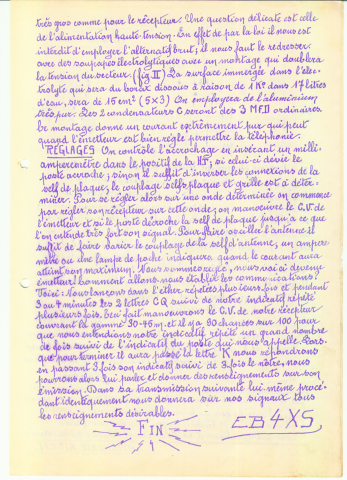 très gros comme pour le récepteur. Une question délicate est celle
de l'alimentation haute tension. En effet de par la loi il nous est
interdit d'employer l'alternatif brut; il nous faut le redresser
avec des soupapes électrolytiques avec un montage qui doublera
la tension du secteur (fig II) La surface immergée dans l'élec-
trolyte qui sera du borax dissous à raison de 1 K° dans 17 litres
d'eau, sera de 15 cm² (5×3) On employera de l'aluminium
très pur. Les 2 condensateurs C seront des 3 MFD ordinaires
Ce montage donne un courant extrêmement pur qui peut
quand l'émetteur est bien réglé permettre la téléphonie.
RÉGLAGES On contrôle l'accrochage en insérant un milli-
ampèremètre dans le positif de la HT; si celui-ci dévie le
poste accroche; sinon il suffit d'inverser les connexions de la
self de plaque, le couplage selfs plaque et grille est à déter-
miner. Pour se régler alors sur une onde déterminée on commence
par régler son récepteur sur cette onde; on manoeuvre le C.V. de
l'émetteur et si le poste décroche la self de plaque jusqu'à ce que
l'on entende très fort son signal. Pour faire osciller l'antenne il
suffit de faire varier le couplage de la self d'antenne, un ampère
mètre ou une lampe de poche indiquera quand le courant aura
atteint son maximum. Nous sommes réglé, nous voici devenu
émetteur! comment allons nous établir les communications?
Voici: Nous lançons dans l'éther répétés plusieurs fois et pendant
3 ou 4 minutes les 2 lettres CQ suivi de notre indicatif répété
plusieurs fois. Ceci fait manoeuvrons le C.V. de notre récepteur
couvrant la gamme 30-45 m. et il y a 90 chances sur 100 pour
que nous entendions notre indicatif répété un grand nombre
de fois suivi de l'indicatif du poste qui nous appelle. Lors-
que pour terminer il aura passé la lettre K nous répondrons
en passant 3 fois son indicatif suivi de 3 fois le notre, nous
pourrons alors lui parler et donner des renseignements sur son
émission. Dans sa transmission suivante lui même procé-
dant identiquement nous donnera sur nos signaux tous
les renseignements désirables.
FIN
EB4XS